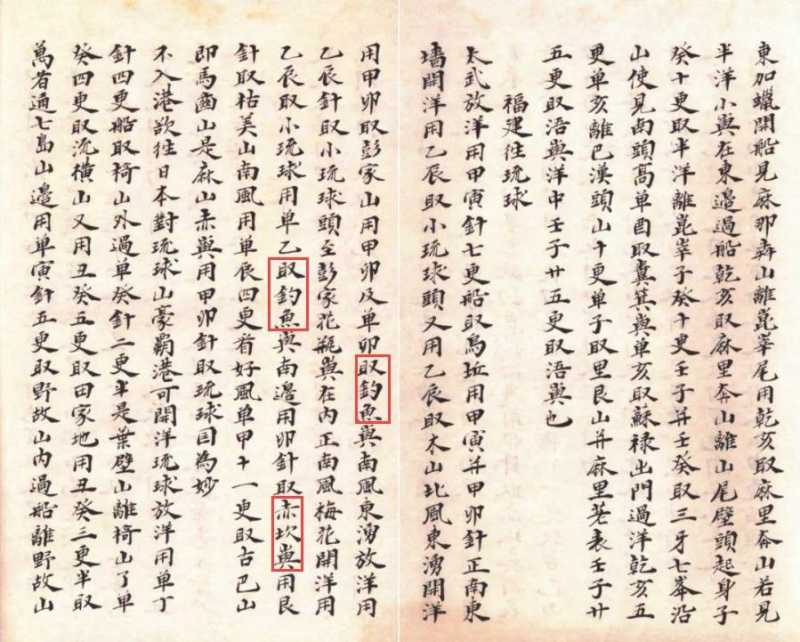 東加蠟開船見麻那犇山離崑峯尾用乾亥取麻里夲山若見
半洋小與在東邊過船乾亥取麻里夲山離山尾壁頭起身子
癸十更取半洋離崑峯子癸十更壬子并壬癸取三牙七峯沿
山使見南頭高单酉取糞箕與单亥取蘇禄出門過洋乾亥五
更单亥離巴漢頭山十更单子取里艮山并麻里荖表壬子廾
五更取浯與洋中壬子廿五更取浯與也
福建往琉球
太武放洋用甲寅針七更船取烏坵用甲寅并甲卯針正南東
墻開洋用乙辰取小琉球頭又用乙辰取木山北風東湧開洋
用甲卯取彭家山用甲卯及单卯取釣魚與南風東湧放洋用
乙辰針取小琉球頭至彭家花瓶與在内正南風梅花開洋用
乙辰取小琉球用单乙取釣魚與南邊用卯針取赤坎與用艮
針取枯美山南風用单辰四更看好風单甲十一更取古巴山
即馬齒山是麻山赤與用甲卯針取琉球国為妙
不入港欲往日本對琉球山豪霸港可開洋琉球放洋用单丁
針四更船取椅山外過单癸針二更半是葉壁山離椅山了单
癸四更取流橫山又用丑癸五更取田家地用丑癸三更半取
萬者通七島山邊用单寅針五更取野故山内過船離野故山